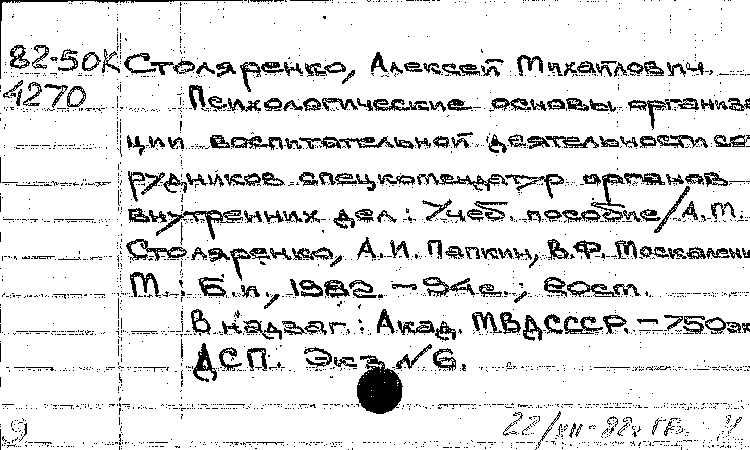 82-50К Столяренко, Алексей Михайлович.
4270 Психологические основы организа
ции воспитательной деятельности сот
рудников спецкомендатур органов
внутренних дел: Учеб. пособие/А.М.
Столяренко, А.И. Папкин, В.Ф. Москаленко
М.: Б.и., 1982. - 94с.; 20см.
В надзаг.: Акад. МВД СССР. - 750эк
ДСП. Экз. №6.
9 22/XII-82г